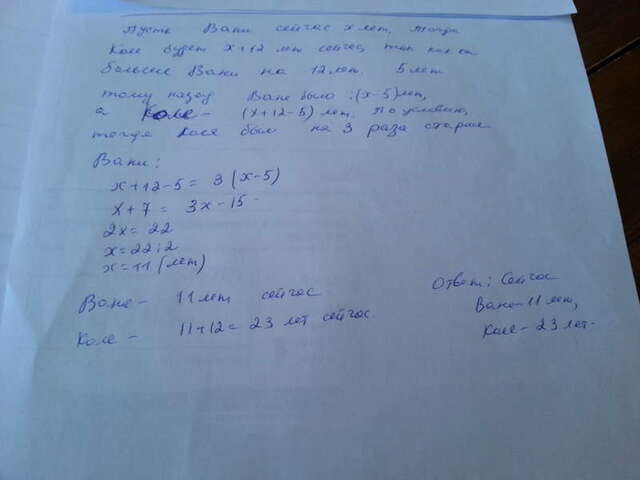 Пусть Вани сейчас x лет, тогда
Коле будет x+12 лет сейчас, так как он
больше Вани на 12 лет. 5 лет
тому назад Ване было :(x-5) лет,
а Коле - (x+12-5) лет. По условию,
тогда Коля был на 3 раза старше
Вани:
x+12-5= 3(x-5)
x+7 = 3x-15
2x= 22
x=22:2
x=11(лет)
Ване- 11 лет сейчас
Коле - 11+12= 23 лет сейчас.
Ответ: Сейчас
Ване-11 лет,
Коле-23 лет.